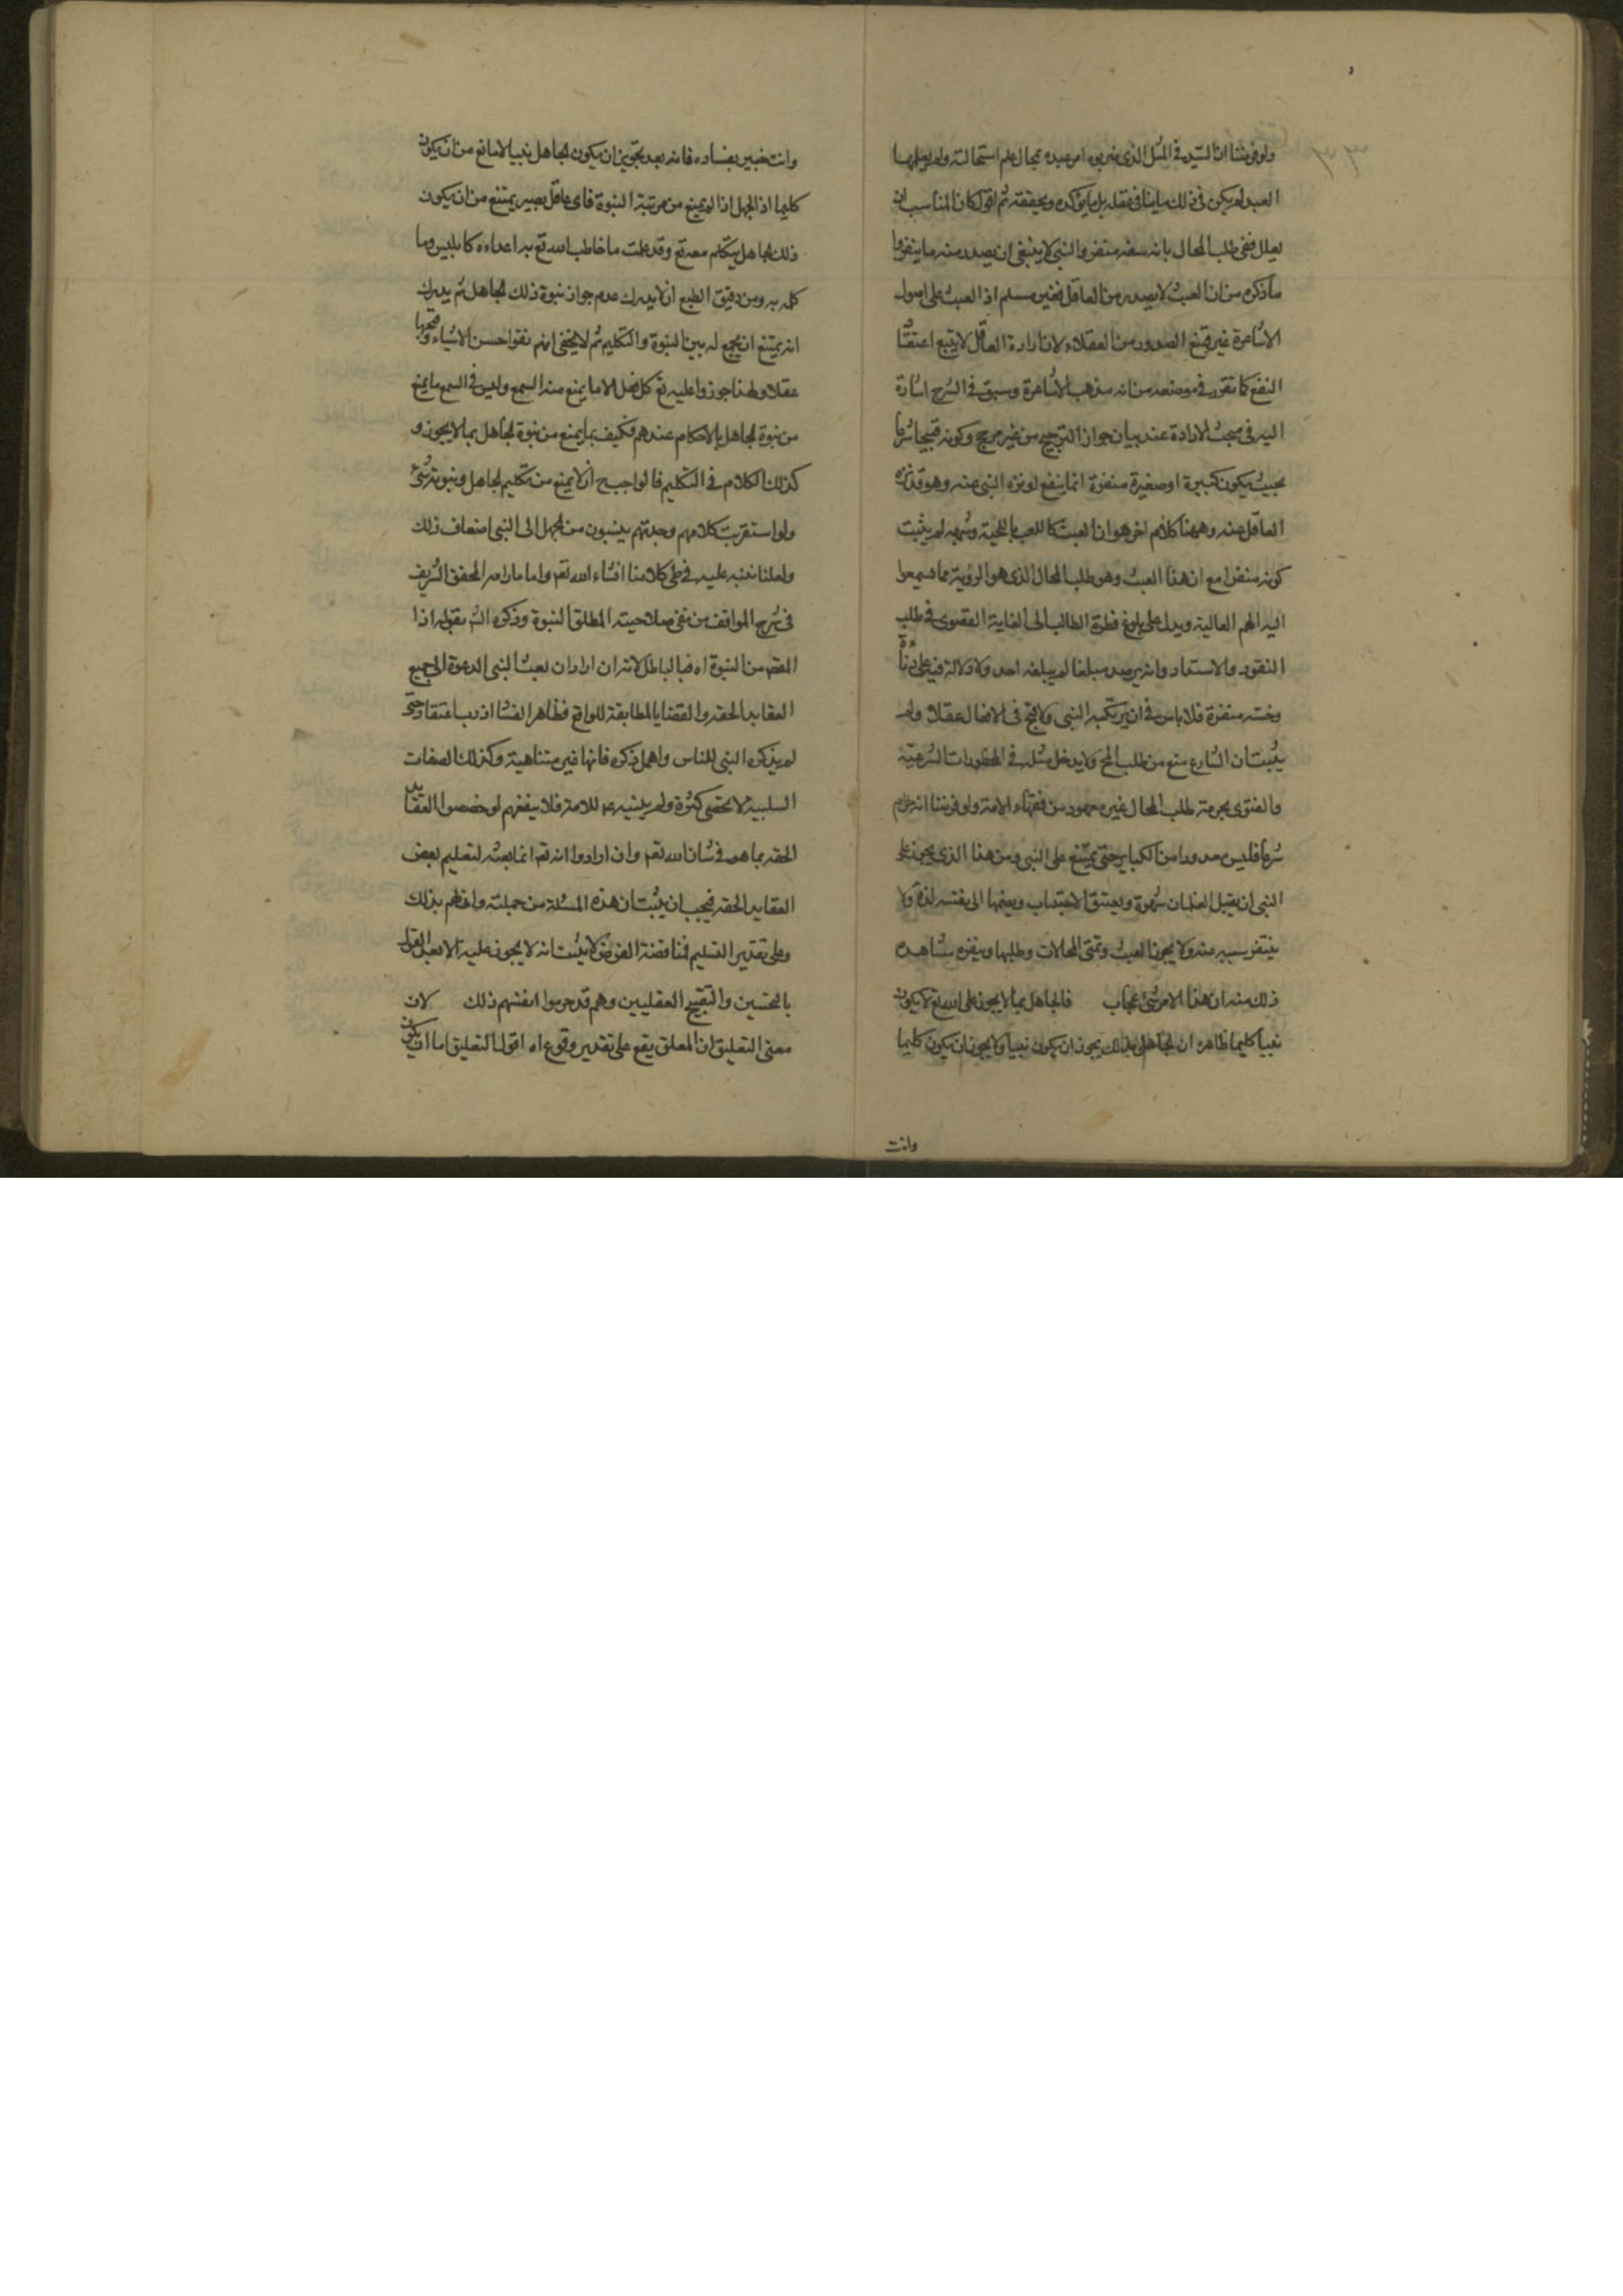 ولو فرضنا ان السيد في المثل الذي ضربوه امر عبده بمحال علم استحالته ولم يعلمها
العبد لم يكن في ذلك ما ينافي عقله بل ما يؤكده ويحققه ثم اقول كان المناسب ان
يعلل نفي طلب المحال بانه سفه منفر والنبي لا ينبغي ان يصدر منه ما ينفر واما
ما ذكره من ان العبث لا يصدر من العاقل فغير مسلم اذ العبث على اصول
الاشاعرة غير ممتنع الصدور من العقلاء لان ارادة العاقل لا يتبع اعتقاد
النفع كما تقرر في موضعه من انه مذهب الاشاعرة وسبق في الشرح اشارة
اليه في مبحث الارادة عند بيان جواز الترجيح من غير مرجح وكونه قبيحا شرعا
بحيث يكون كبيرة او صغيرة منفرة انما ينفع لو نزه النبي عنه وهو قد نزه
العاقل عنه وههنا كلام اخر هو ان العبث كاللعب باللحية وشبهه لم يثبت
كونه منفرا مع ان هذا العبث وهو طلب المحال الذي هو الرؤية مما تسمعوا
اليه الهمم العالية ويدل على بلوغ فطرة الطالب الى الغاية القصوى في طلب
النقود والاستعداد وانه يرصد مبلغا لم يبلغه احد ولا دلالة فيه على دناءة
وخسة منفرة فلا باس في ان يرتكبه النبي ولا قبح في الافعال عقلا ولم
يثبت ان الشارع منع من طلب المح ولا يدخل مثله في المحظورات الشرعية
والفتوى بحرمة طلب المحال غير معهود من فقهاء الامة ولو فرضنا انه حرام
شرعا فليس معدودا من الكباير حتى يمتنع على النبي ومن هذا الذي يجوز على
النبي ان يقبل الغلمان شهوة ويعتنق الاجنبيات ويضمها الى نفسه لذة ولا
يتنفر بسببه عنه ولا يجوز العبث وتمنى المحالات وطلبها وينفره مشاهدة
ذلك منه ان هذا الامر شئ عجاب فالجاهل بما لا يجوز على الله تع لا يكون
نبيا كليما ظاهره ان الجاهل بذلك يجوز ان يكون نبيا ولا يجوز ان يكون كليما
وانت
وانت خبير بفساده فانه بعد تجويز ان يكون الجاهل نبيا لا مانع من ان يكون
كليما اذ الجهل اذا لم يمنع من مرتبة النبوة فاي عاقل بصير يمتنع من ان يكون
ذلك الجاهل يتكلم معه تع وقد علمت ما خاطب الله تع به اعداءه كابليس وما
كلمه به ومن دقيق الطبع ان لا يدرك عدم جواز نبوة ذلك الجاهل ثم يدرك
انه يمتنع ان يجمع له بين النبوة والتكليم ثم لا يخفى انهم نفوا حسن الاشياء وقبحها
عقلا ولهذا جوزوا عليه تع كل فعل الا ما يمنع منه السمع وليس في السمع ما يمنع
من نبوة الجاهل بالاحكام عندهم فكيف بما يمنع من نبوة الجاهل بما لا يجوز و
كذلك الكلام في التكليم فالواجب ح ان لا يمنع من تكليم الجاهل ونبوته شئ
ولو استقربت كلامهم وجدتهم ينسبون من الجهل الى النبي اضعاف ذلك
ولعلنا ننبه عليه في طي كلامنا انشاء الله تعم واما ما رامه المحقق الشريف
في شرح المواقف من نفي صلاحيته المطلق النبوة وذكره الش بقوله اذا
المقصم من النبوة اه فبالباطل لانه ان اراد ان بعث النبي الدعوة الى جميع
العقايد الحقه والقضايا المطابقة للواقع فظاهر الفساد اذ رب اعتقاد حق
لم يذكره النبي للناس واهمل ذكره فانها غير متناهية وكذلك الصفات
السلبية لا تحصى كثرة ولم يبينه عم للامة فلا ينفعهم لو خصصوا العقايد
الحقه بما هو في شان الله تعم وان ارادوا انه تعم انما بعثه لتعليم بعض
العقايد الحقه فيجب ان يثبت ان هذه المسئلة من جملته وانى لهم بذلك
وعلى تقدير التسليم فمناقضة الغرض لا يثبت انه لا يجوز عليه الا بعد القول
بالتحسين والتقبيح العقليين وهم قد حرموا انفسهم ذلك لان
معنى التعليق ان المعلق يقع على تقدير وقوع اه اقول التعليق اما ان يكون